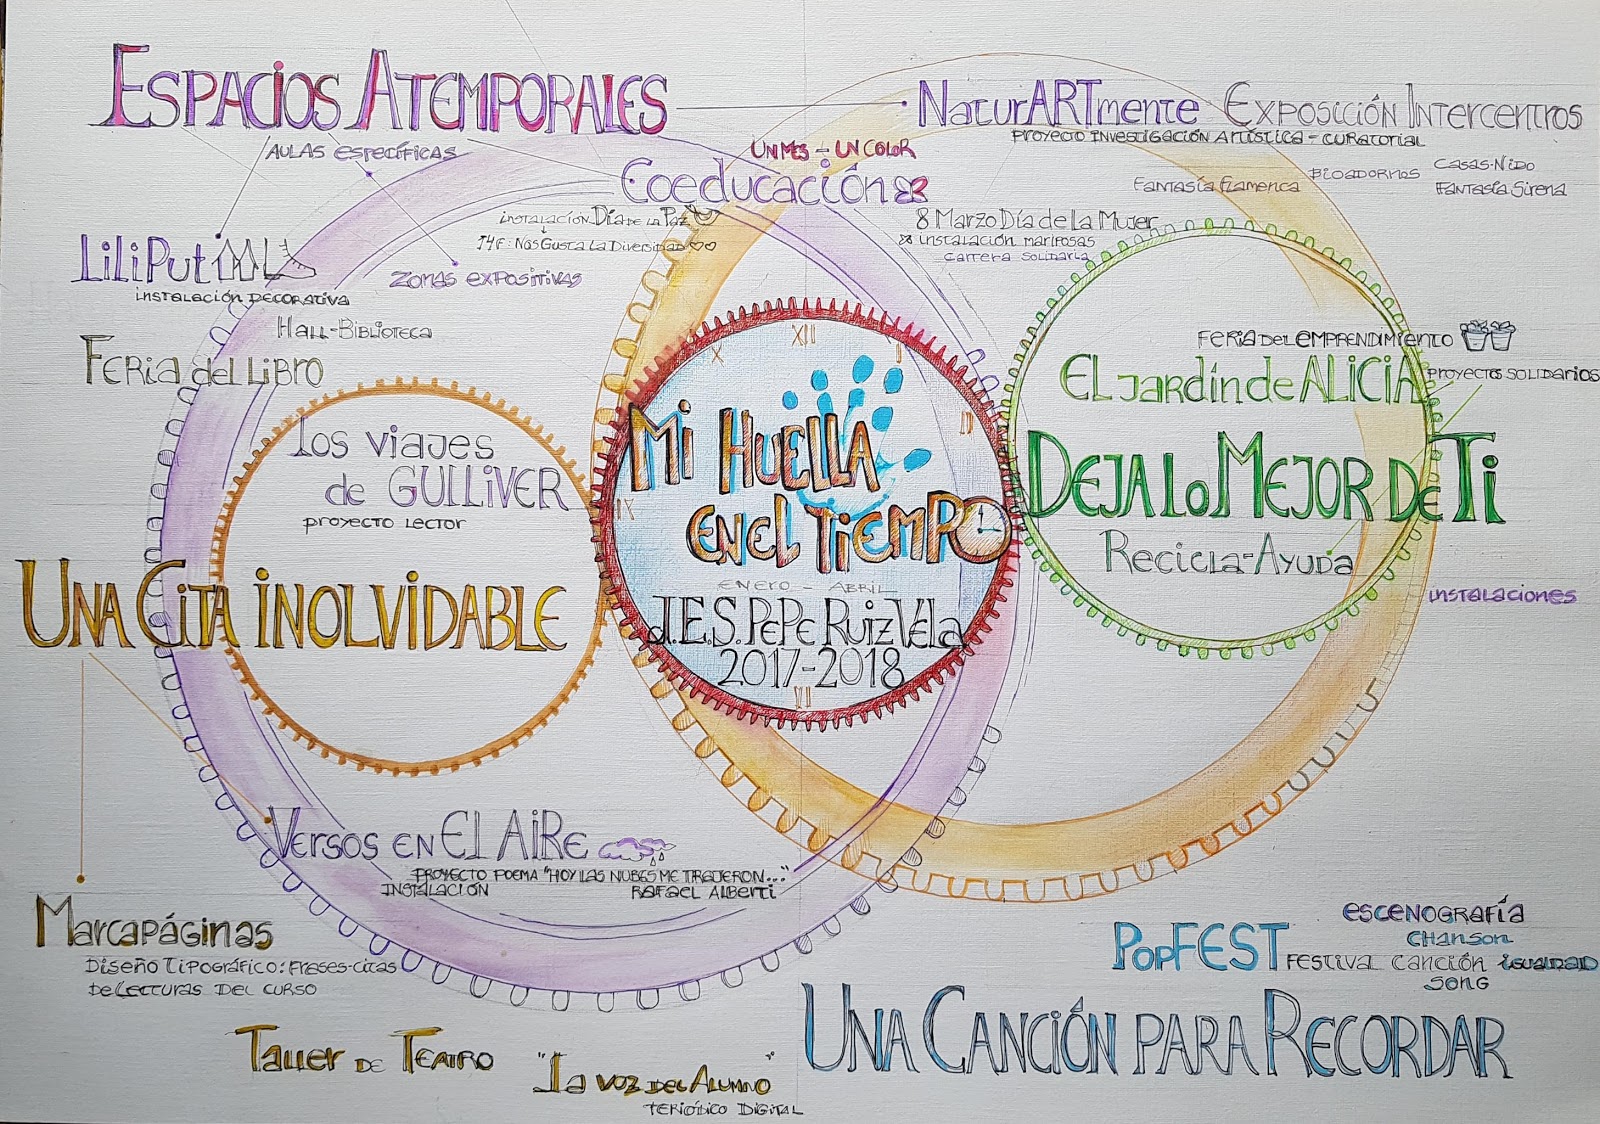 ESPACIOS ATEMPORALES
AULAS ESPECÍFICAS
NaturARTmente - EXPOSICIÓN INTERCENTROS
PROYECTO INVESTIGACIÓN ARTÍSTICA - CURATORIAL
FANTASÍA FLAMENCA
BIOADORNOS
CASAS-NIDO
FANTASÍA SIRENA
UN MES - UN COLOR
Coeducación
INSTALACIÓN DÍA DE LA PAZ
14F: NOS GUSTA LA DIVERSIDAD
8 MARZO DÍA DE LA MUJER
INSTALACIÓN MARIPOSAS
CARRERA SOLIDARIA
LILIPUT
INSTALACIÓN DECORATIVA
ZONAS EXPOSITIVAS
HALL-BIBLIOTECA
FERIA DEL LIBRO
LOS VIAJES
de GULLIVER
PROYECTO LECTOR
UNA CITA INOLVIDABLE
X XII I
II
IX
MI HUELLA
EN EL TIEMPO
ENERO - ABRIL
I.E.S. PEPE RUIZ VELA
2017-2018
VI
FERIA DEL EMPRENDIMIENTO
EL JARDÍN DE ALICIA
PROYECTOS SOLIDARIOS
DEJA LO MEJOR DE TI
RECICLA-AYUDA
INSTALACIONES
VERSOS EN EL AIRE
PROYECTO POEMA "HOY LAS NUBES ME TRAJERON..."
INSTALACIÓN RAFAEL ALBERTI
MARCAPÁGINAS
DISEÑO TIPOGRÁFICO: FRASES-CITAS
DE LECTURAS DEL CURSO
TALLER DE TEATRO
"LA VOZ DEL ALUMNO"
PERIÓDICO DIGITAL
POPFEST
ESCENOGRAFÍA
CHANSON
FESTIVAL CANCIÓN IGUALDAD
SONG
UNA CANCIÓN PARA RECORDAR